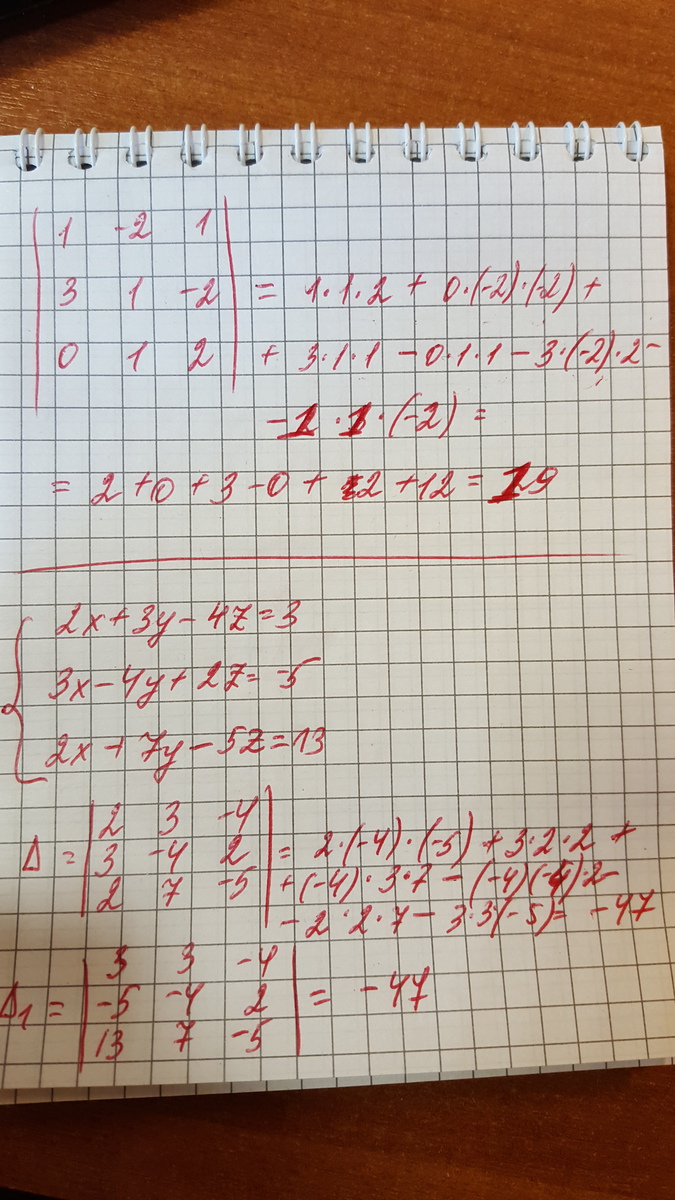 | 1 -2 1 |
| 3 1 -2 | = 1·1·2 + 0·(-2)·(-2) +
| 0 1 2 | + 3·1·1 - 0·1·1 - 3·(-2)·2 -
- 1·1·(-2) =
= 2 + 0 + 3 - 0 + 2 + 12 = 19
{ 2x + 3y - 4z = 3
3x - 4y + 2z = -5
2x + 7y - 5z = 13
| 2 3 -4 |
Δ = | 3 -4 2 | = 2·(-4)·(-5) + 3·2·2 +
| 2 7 -5 | + (-4)·3·7 - (-4)(-4)·2 -
- 2·2·7 - 3·3(-5) = -47
| 3 3 -4 |
Δ1 = | -5 -4 2 | = -47
| 13 7 -5 |